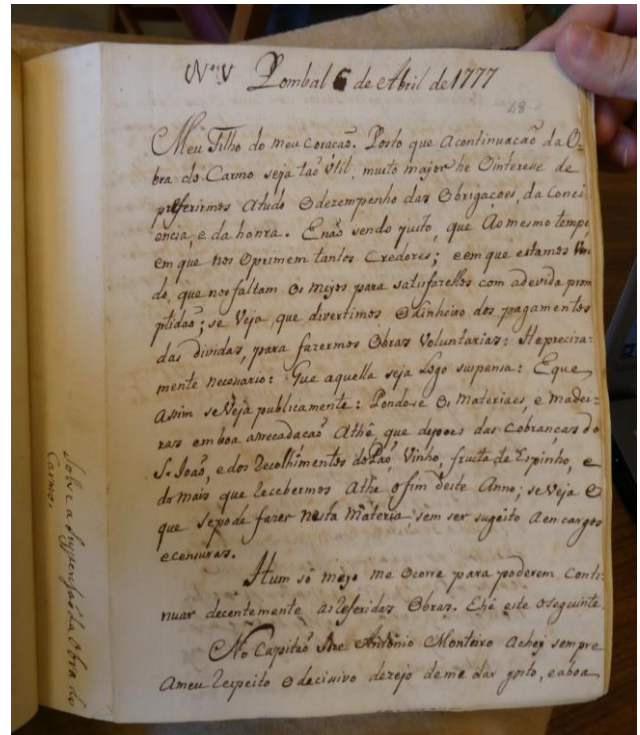 Nº V Pombal 6 de Abril de 1777
48
Meu Filho do meu coração. Posto que a continuacaõ da O-
bra do Carmo seja taõ util, muito major he O interesse de
preferirmos atudo O dezempenho das Obrigacoes, da Consci
encia, e da honra. E naõ sendo justo, que Ao mesmo tempo
em que nos Oprimem tantos Credores; e em que estamos Ven
do, que nos faltam Os mejos para satisfarellos com a devida prom
ptidaõ; se Veja, que divertimos O dinheiro dos pagamentos
das dividas, para fazermos Obras Voluntarias: He preciza-
mente necessario: Que aquella seja Logo suspensa: E que
Assim se Veja publicamente: Pondose Os Materiaes, e madei-
ras em boa arrecadacaõ Athé, que depoes das Cobranças do
S. Joaõ, e dos Recolhimentos do Paõ, Vinho, fructa de Espinho, e
do mais que Recebermos Athe o fim deste Anno; se Veja O
que Se pode fazer nesta Materia sem ser sugeito A encargos
e censuras.
Hum só mejo me Ocorre para poderem conti-
nuar decentemente as Referidas Obras. E hé este o seguinte.
No Cappitaõ Antonio Monteiro Achej sempre
A meu Respeito O decisivo dezejo de me dar gosto, e a boa
Sobre a Suspensaõ da Obra do
Carmo.